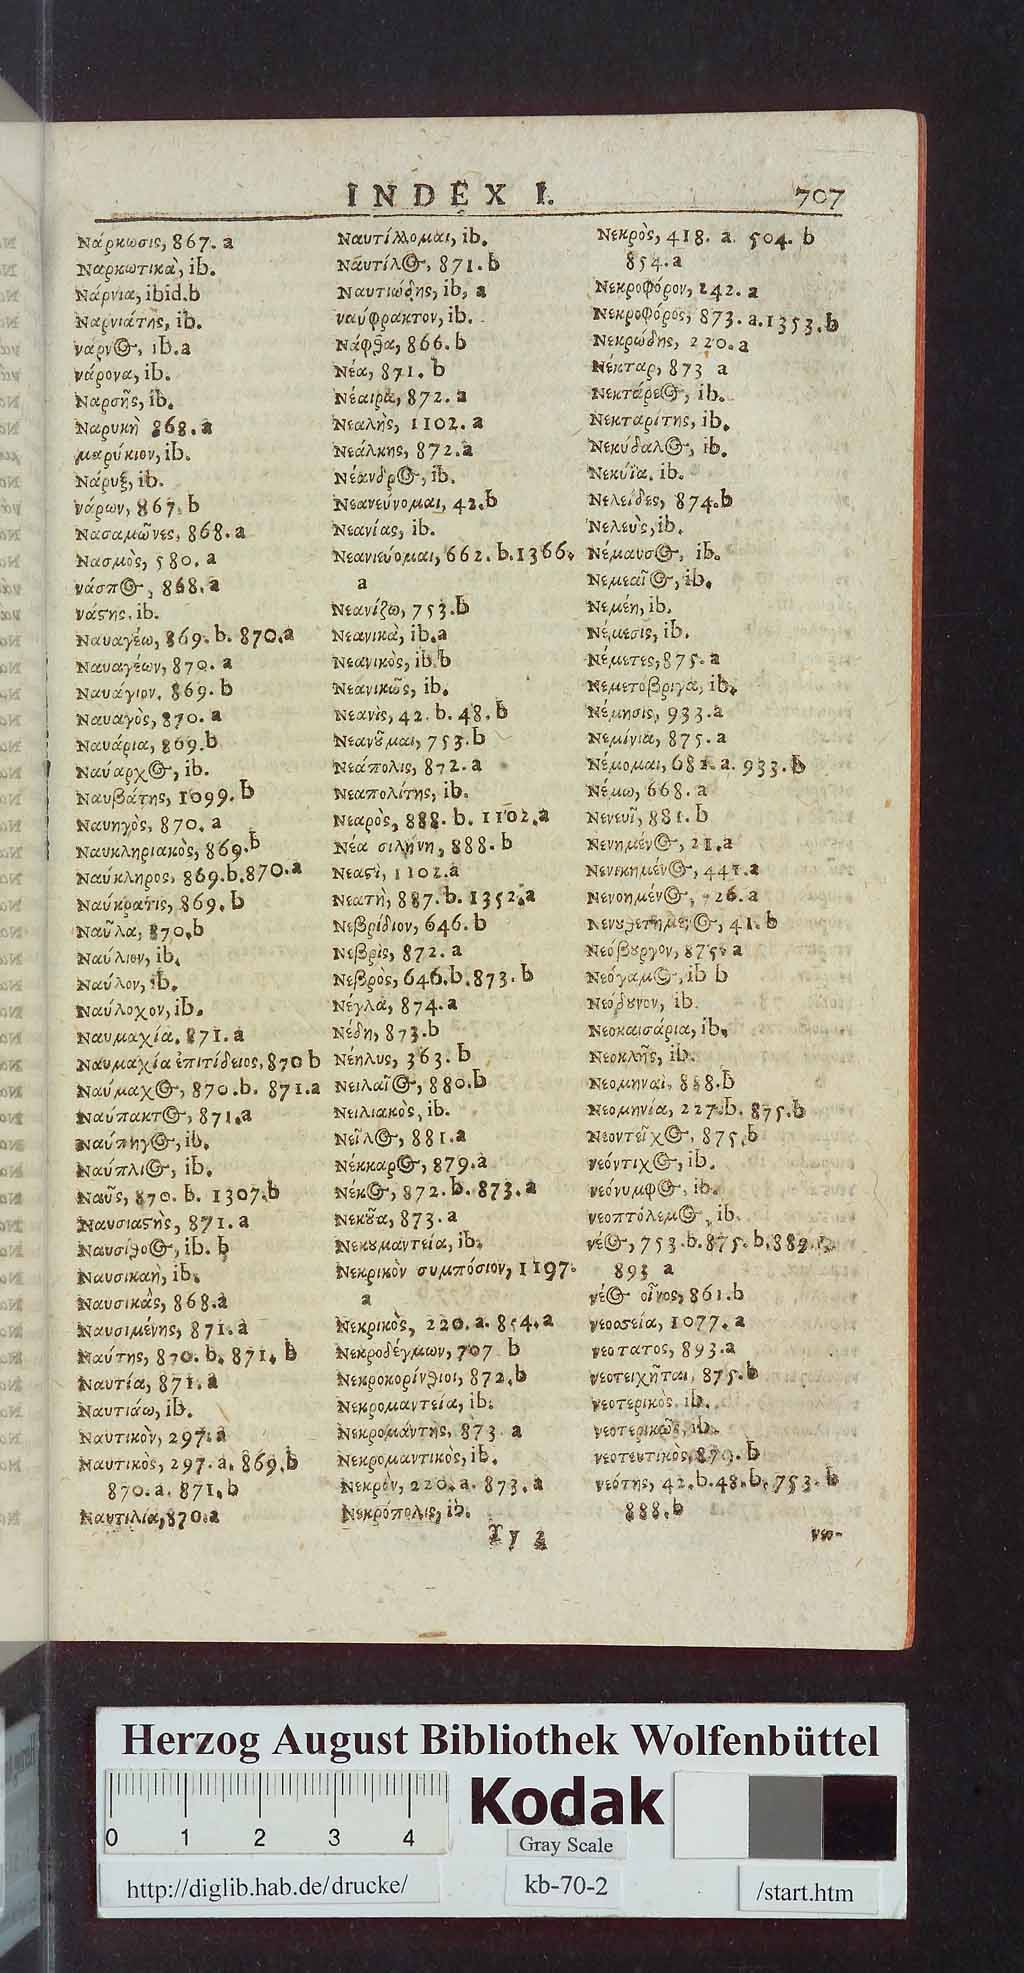 INDEX I. 707
Νάρκωσις, 867. a
Ναρκωτικὰ, ib.
Νάρνια, ibid.b
Ναρνιάτης, ib.
νάρνος, ib.a
νάρονα, ib.
Ναρσῆς, ib.
Ναρυκὴ 868. a
μαρύκιον, ib.
Νάρυξ, ib.
νάρων, 867. b
Νασαμῶνες, 868. a
Νασμὸς, 580. a
νάσπος, 868. a
νάϛης, ib.
Ναυαγέω, 869. b. 870.a
Ναυαγέων, 870. a
Ναυάγιον, 869. b
Ναυαγὸς, 870. a
Ναυάρια, 869.b
Ναύαρχος, ib.
Ναυβάτης, 1099. b
Ναυηγὸς, 870. a
Ναυκληριακὸς, 869.b
Ναύκληρος, 869.b.870.a
Ναύκρατις, 869. b
Ναῦλα, 870.b
Ναύλιον, ib.
Ναύλον, ib.
Ναύλοχον, ib.
Ναυμαχία, 871. a
Ναυμαχία ἐπιτίδειος, 870 b
Ναύμαχος, 870.b. 871.a
Ναύπακτος, 871.a
Ναύπηγος, ib.
Ναύπλιος, ib.
Ναῦς, 870. b. 1307.b
Ναυσιαϛὴς, 871. a
Ναυσίθοος, ib. b
Ναυσικαὴ, ib.
Ναυσικᾶς, 868.a
Ναυσιμένης, 871. a
Ναύτης, 870. b. 871. b
Ναυτία, 871. a
Ναυτιάω, ib.
Ναυτικὸν, 297. a
Ναυτικὸς, 297. a. 869.b
870. a. 871. b
Ναυτιλία, 870.a
Ναυτίλλομαι, ib.
Ναυτίλος, 871. b
Ναυτιώδης, ib, a
ναύφρακτον, ib.
Νάφθα, 866. b
Νέα, 871. b
Νέαιρα, 872. a
Νεαλὴς, 1102. a
Νεάλκης, 872.a
Νέανδρος, ib.
Νεανεύνομαι, 42.b
Νεανίας, ib.
Νεανιεύομαι, 662. b. 1366.
a
Νεανίζω, 753.b
Νεανικὰ, ib.a
Νεανικὸς, ib.b
Νεανικῶς, ib.
Νεανὶς, 42. b. 48. b
Νεανȣ͂μαι, 753.b
Νεάπολις, 872. a
Νεαπολίτης, ib.
Νεαρὸς, 888. b. 1102.a
Νέα σιλήνη, 888. b
Νεαϛὶ, 1102.a
Νεατὴ, 887. b. 1352.a
Νεβρίδιον, 646. b
Νεβρὶς, 872. a
Νεβρὸς, 646.b. 873. b
Νέγλα, 874. a
Νέδη, 873.b
Νέηλυς, 363. b
Νειλαῖος, 880.b
Νειλιακὸς, ib.
Νεῖλος, 881.a
Νέκκαρος, 879.a
Νέκος, 872. b. 873. a
Νεκȣ͂α, 873. a
Νεκυμαντεία, ib.
Νεκρικὸν συμπόσιον, 1197.
a
Νεκρικὸς, 220. a. 854.a
Νεκροδέγμων, 707 b
Νεκροκορίνθιοι, 872.b
Νεκρομαντεία, ib.
Νεκρομάντης, 873. a
Νεκρομαντικὸς, ib.
Νεκρὸν, 220. a. 873. a
Νεκρόπολις, ib.
Νεκρὸς, 418. a. 504. b
854.a
Νεκροφόρον, 242. a
Νεκροφόρος, 873. a.1353.b
Νεκρώδης, 220. a
Νέκταρ, 873 a
Νεκτάρεος, ib.
Νεκταρίτης, ib.
Νεκύδαλος, ib.
Νεκύϊα, ib.
Νελείδες, 874.b
Νελεὺς, ib.
Νέμαυσος, ib.
Νεμεαῖος, ib.
Νεμέη, ib.
Νέμεσις, ib.
Νέμετες, 875. a
Νεμετοβριγα, ib.
Νέμησις, 933.a
Νεμίνια, 875. a
Νέμομαι, 681. a. 933. b
Νέμω, 668. a
Νενευῖ, 881. b
Νενημένος, 21.a
Νενικημένος, 441.a
Νενοημένος, 26. a
Νενȣθετημένος, 41. b
Νεόβȣργον, 875. a
Νεόγαμος, ib b
Νεόδȣνον, ib.
Νεοκαισάρια, ib.
Νεοκλῆς, ib.
Νεομηναὶ, 888.b
Νεομηνία, 227.b. 875.b
Νεοντεῖχος, 875.b
νεόντιχος, ib.
νεόνυμφος, ib.
νεοπτόλεμος, ib.
νέος, 753.b.875. b.889.
893 a
νέος οἶνος, 861.b
νεοσεία, 1077. a
νεοτατος, 893.a
νεοτειχῆται, 875.b
νεοτερικὸς, ib.
νεοτερικῶς, ib.
νεοτευτικὸς, 879. b
νεότης, 42.b.48.b. 753. b
888.b
Yy 2
νεο-
Herzog August Bibliothek Wolfenbüttel
0 1 2 3 4
Kodak
Gray Scale
http://diglib.hab.de/drucke/
kb-70-2
/start.htm